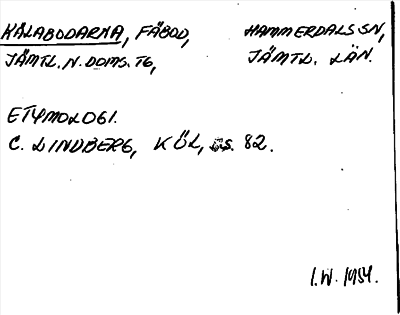 KÄLABODARNA, FÄBOD, HAMMERDALS SN,
JÄMTL. N. DOMS. TG, JÄMTL. LÄN.
ETYMOLOGI.
C. LINDBERG, KÖL, s. 82.
I.W. 1954.